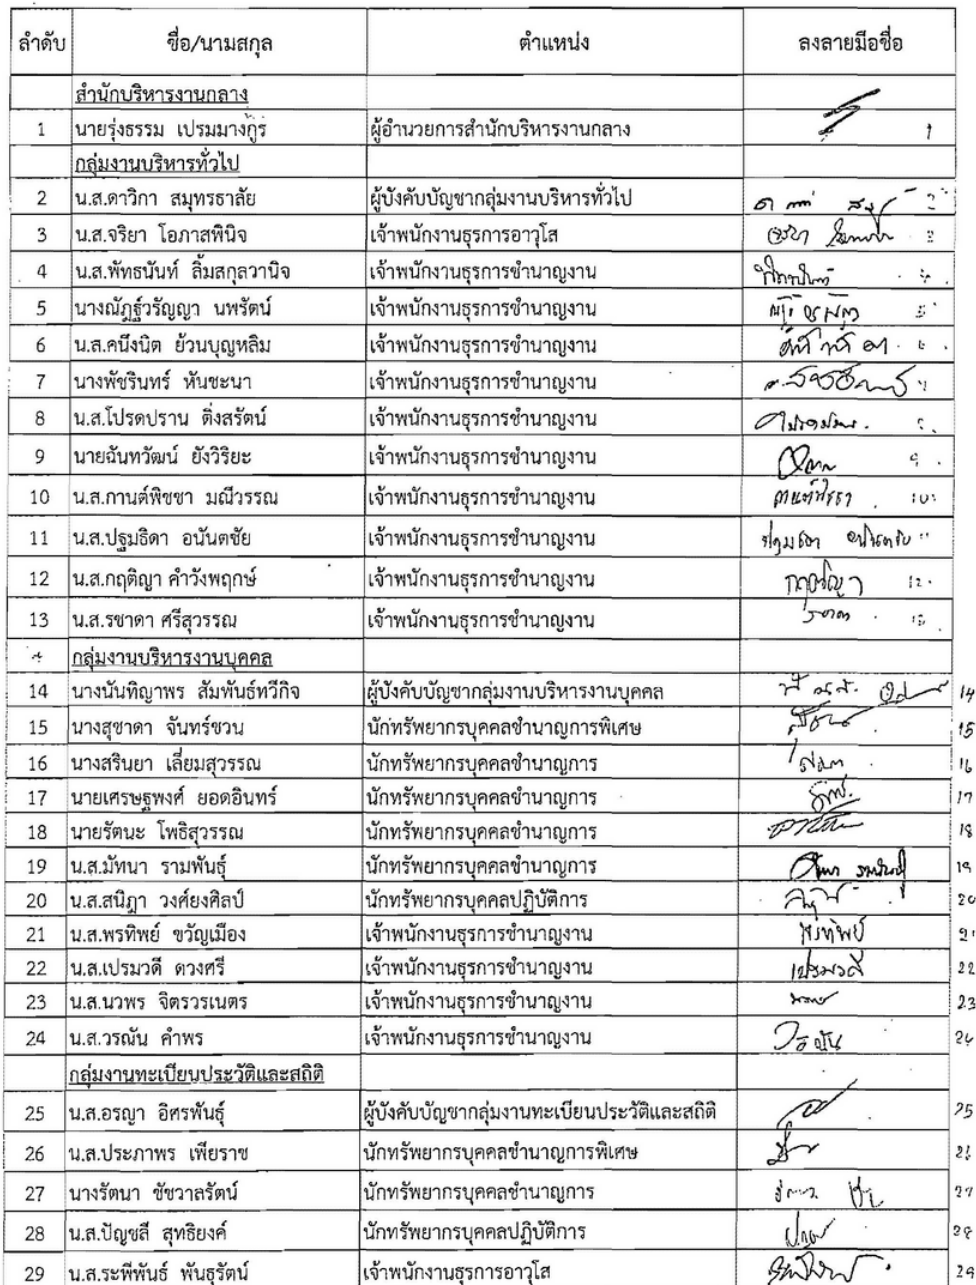 ลำดับ ชื่อ/นามสกุล ตำแหน่ง ลงลายมือชื่อ
สำนักบริหารงานกลาง
1 นายรุ่งธรรม เปรมมางกูร ผู้อำนวยการสำนักบริหารงานกลาง 1
กลุ่มงานบริหารทั่วไป
2 น.ส.ดาวิกา สมุทรธาลัย ผู้บังคับบัญชากลุ่มงานบริหารทั่วไป 2
3 น.ส.จริยา โอภาสพินิจ เจ้าพนักงานธุรการอาวุโส 3
4 น.ส.พัทธนันท์ ลิ้มสกุลวานิจ เจ้าพนักงานธุรการชำนาญงาน
5 นางณัฏฐ์วรัญญา นพรัตน์ เจ้าพนักงานธุรการชำนาญงาน
6 น.ส.คนึงนิต ย้วนบุญหลิม เจ้าพนักงานธุรการชำนาญงาน
7 นางพัชรินทร์ หันชะนา เจ้าพนักงานธุรการชำนาญงาน
8 น.ส.โปรดปราน ติ่งสรัตน์ เจ้าพนักงานธุรการชำนาญงาน
9 นายฉันทวัฒน์ ยังวิริยะ เจ้าพนักงานธุรการชำนาญงาน 9
10 น.ส.กานต์พิชชา มณีวรรณ เจ้าพนักงานธุรการชำนาญงาน กานต์พิชชา 10
11 น.ส.ปฐมธิดา อนันตชัย เจ้าพนักงานธุรการชำนาญงาน 11
12 น.ส.กฤติญา คำวังพฤกษ์ เจ้าพนักงานธุรการชำนาญงาน 12
13 น.ส.รชาดา ศรีสุวรรณ เจ้าพนักงานธุรการชำนาญงาน 13
กลุ่มงานบริหารงานบุคคล
14 นางนันทิญาพร สัมพันธ์ทวีกิจ ผู้บังคับบัญชากลุ่มงานบริหารงานบุคคล 14
15 นางสุชาดา จันทร์ชวน นักทรัพยากรบุคคลชำนาญการพิเศษ 15
16 นางสรินยา เลี่ยมสุวรรณ นักทรัพยากรบุคคลชำนาญการ 16
17 นายเศรษฐพงศ์ ยอดอินทร์ นักทรัพยากรบุคคลชำนาญการ 17
18 นายรัตนะ โพธิสุวรรณ นักทรัพยากรบุคคลชำนาญการ 18
19 น.ส.มัทนา รามพันธุ์ นักทรัพยากรบุคคลชำนาญการ 19
20 น.ส.สนิฎา วงศ์ยงศิลป์ นักทรัพยากรบุคคลปฏิบัติการ 20
21 น.ส.พรทิพย์ ขวัญเมือง เจ้าพนักงานธุรการชำนาญงาน พรทิพย์ 21
22 น.ส.เปรมวดี ดวงศรี เจ้าพนักงานธุรการชำนาญงาน เปรมวดี 22
23 น.ส.นวพร จิตรวรเนตร เจ้าพนักงานธุรการชำนาญงาน 23
24 น.ส.วรณัน คำพร เจ้าพนักงานธุรการชำนาญงาน วรณัน 24
กลุ่มงานทะเบียนประวัติและสถิติ
25 น.ส.อรญา อิศรพันธุ์ ผู้บังคับบัญชากลุ่มงานทะเบียนประวัติและสถิติ 25
26 น.ส.ประภาพร เพียราช นักทรัพยากรบุคคลชำนาญการพิเศษ 26
27 นางรัตนา ชัชวาลรัตน์ นักทรัพยากรบุคคลชำนาญการ 27
28 น.ส.ปัญชลี สุทธิยงค์ นักทรัพยากรบุคคลปฏิบัติการ 28
29 น.ส.ระพีพันธ์ พันธุรัตน์ เจ้าพนักงานธุรการอาวุโส 29